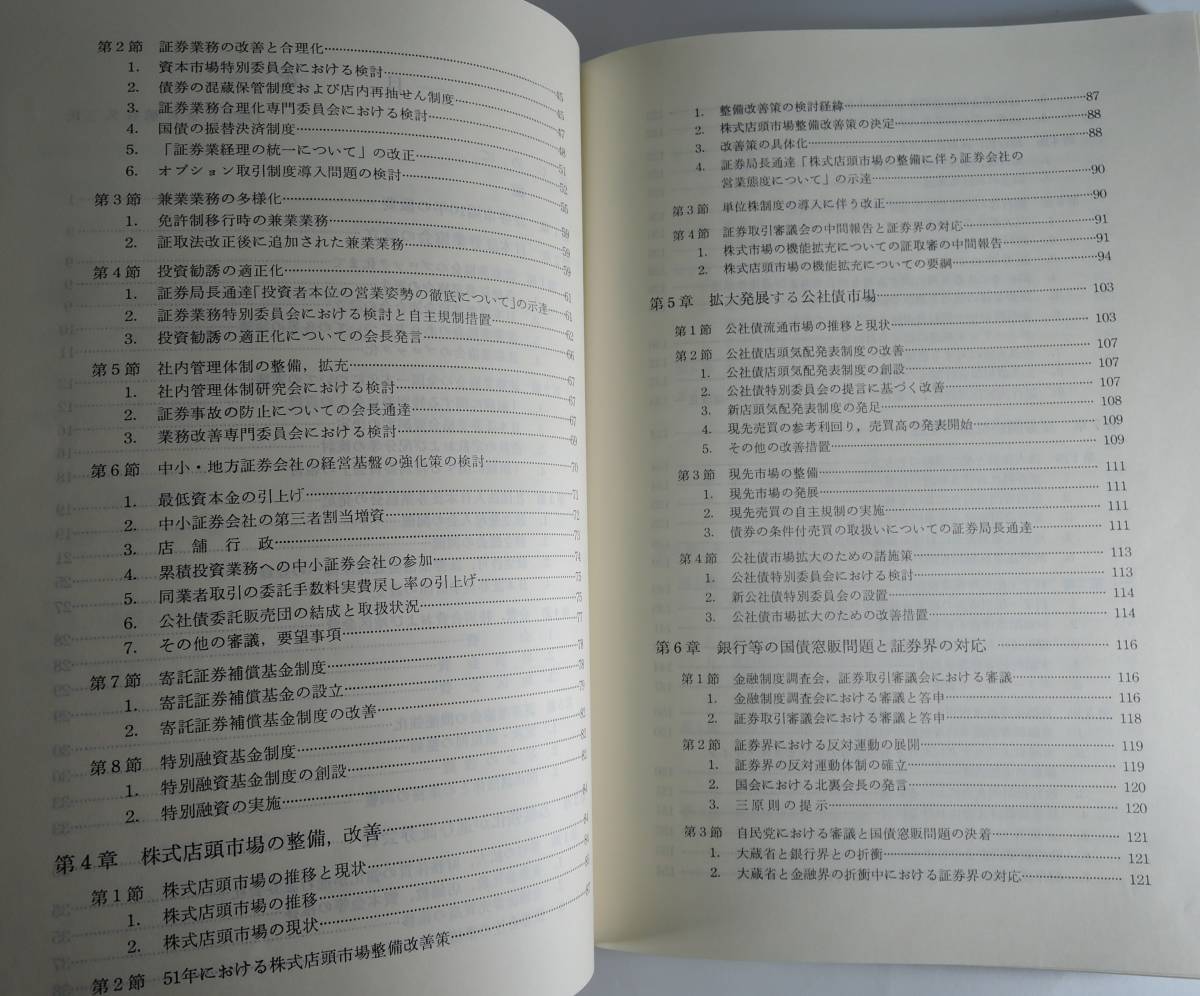 第2節 証券業務の改善と合理化
1. 資本市場特別委員会における検討 45
2. 債券の混蔵保管制度および店内再抽せん制度 45
3. 証券業務合理化専門委員会における検討 47
4. 国債の振替決済制度 48
5. 「証券業経理の統一について」の改正 51
6. オプション取引制度導入問題の検討 52
第3節 兼業業務の多様化 55
1. 免許制移行時の兼業業務 59
2. 証取法改正後に追加された兼業業務 59
第4節 投資勧誘の適正化 59
1. 証券局長通達「投資者本位の営業姿勢の徹底について」の示達 61
2. 証券業務特別委員会における検討と自主規制措置 62
3. 投資勧誘の適正化についての会長発言 66
第5節 社内管理体制の整備,拡充 67
1. 社内管理体制研究会における検討 67
2. 証券事故の防止についての会長通達 67
3. 業務改善専門委員会における検討 69
第6節 中小・地方証券会社の経営基盤の強化策の検討 70
1. 最低資本金の引上げ 71
2. 中小証券会社の第三者割当増資 72
3. 店舗行政 73
4. 累積投資業務への中小証券会社の参加 74
5. 同業者取引の委託手数料実費戻し率の引上げ 75
6. 公社債委託販売団の結成と取扱状況 75
7. その他の審議,要望事項 77
第7節 寄託証券補償基金制度 78
1. 寄託証券補償基金の設立 78
2. 寄託証券補償基金制度の改善 79
第8節 特別融資基金制度 81
1. 特別融資基金制度の創設 81
2. 特別融資の実施 81
第4章 株式店頭市場の整備,改善 84
第1節 株式店頭市場の推移と現状 84
1. 株式店頭市場の推移 84
2. 株式店頭市場の現状
第2節 51年における株式店頭市場整備改善策 87
1. 整備改善策の検討経緯 87
2. 株式店頭市場整備改善策の決定 88
3. 改善策の具体化 88
4. 証券局長通達「株式店頭市場の整備に伴う証券会社の
営業態度について」の示達 90
第3節 単位株制度の導入に伴う改正 90
第4節 証券取引審議会の中間報告と証券界の対応 91
1. 株式市場の機能拡充についての証取審の中間報告 91
2. 株式店頭市場の機能拡充についての要綱 94
第5章 拡大発展する公社債市場 103
第1節 公社債流通市場の推移と現状 103
第2節 公社債店頭気配発表制度の改善 107
1. 公社債店頭気配発表制度の創設 107
2. 公社債特別委員会の提言に基づく改善 107
3. 新店頭気配発表制度の発足 108
4. 現先売買の参考利回り,売買高の発表開始 109
5. その他の改善措置 109
第3節 現先市場の整備 111
1. 現先市場の発展 111
2. 現先売買の自主規制の実施 111
3. 債券の条件付売買の取扱いについての証券局長通達 111
第4節 公社債市場拡大のための諸施策 113
1. 公社債特別委員会における検討 113
2. 新公社債特別委員会の設置 114
3. 公社債市場拡大のための改善措置 114
第6章 銀行等の国債窓販問題と証券界の対応 116
第1節 金融制度調査会,証券取引審議会における審議 116
1. 金融制度調査会における審議と答申 116
2. 証券取引審議会における審議と答申 118
第2節 証券界における反対運動の展開 119
1. 証券界の反対運動体制の確立 119
2. 国会における北裏会長の発言 120
3. 三原則の提示 120
第3節 自民党における審議と国債窓販問題の決着 121
1. 大蔵省と銀行界との折衝 121
2. 大蔵省と金融界の折衝中における証券界の対応 121